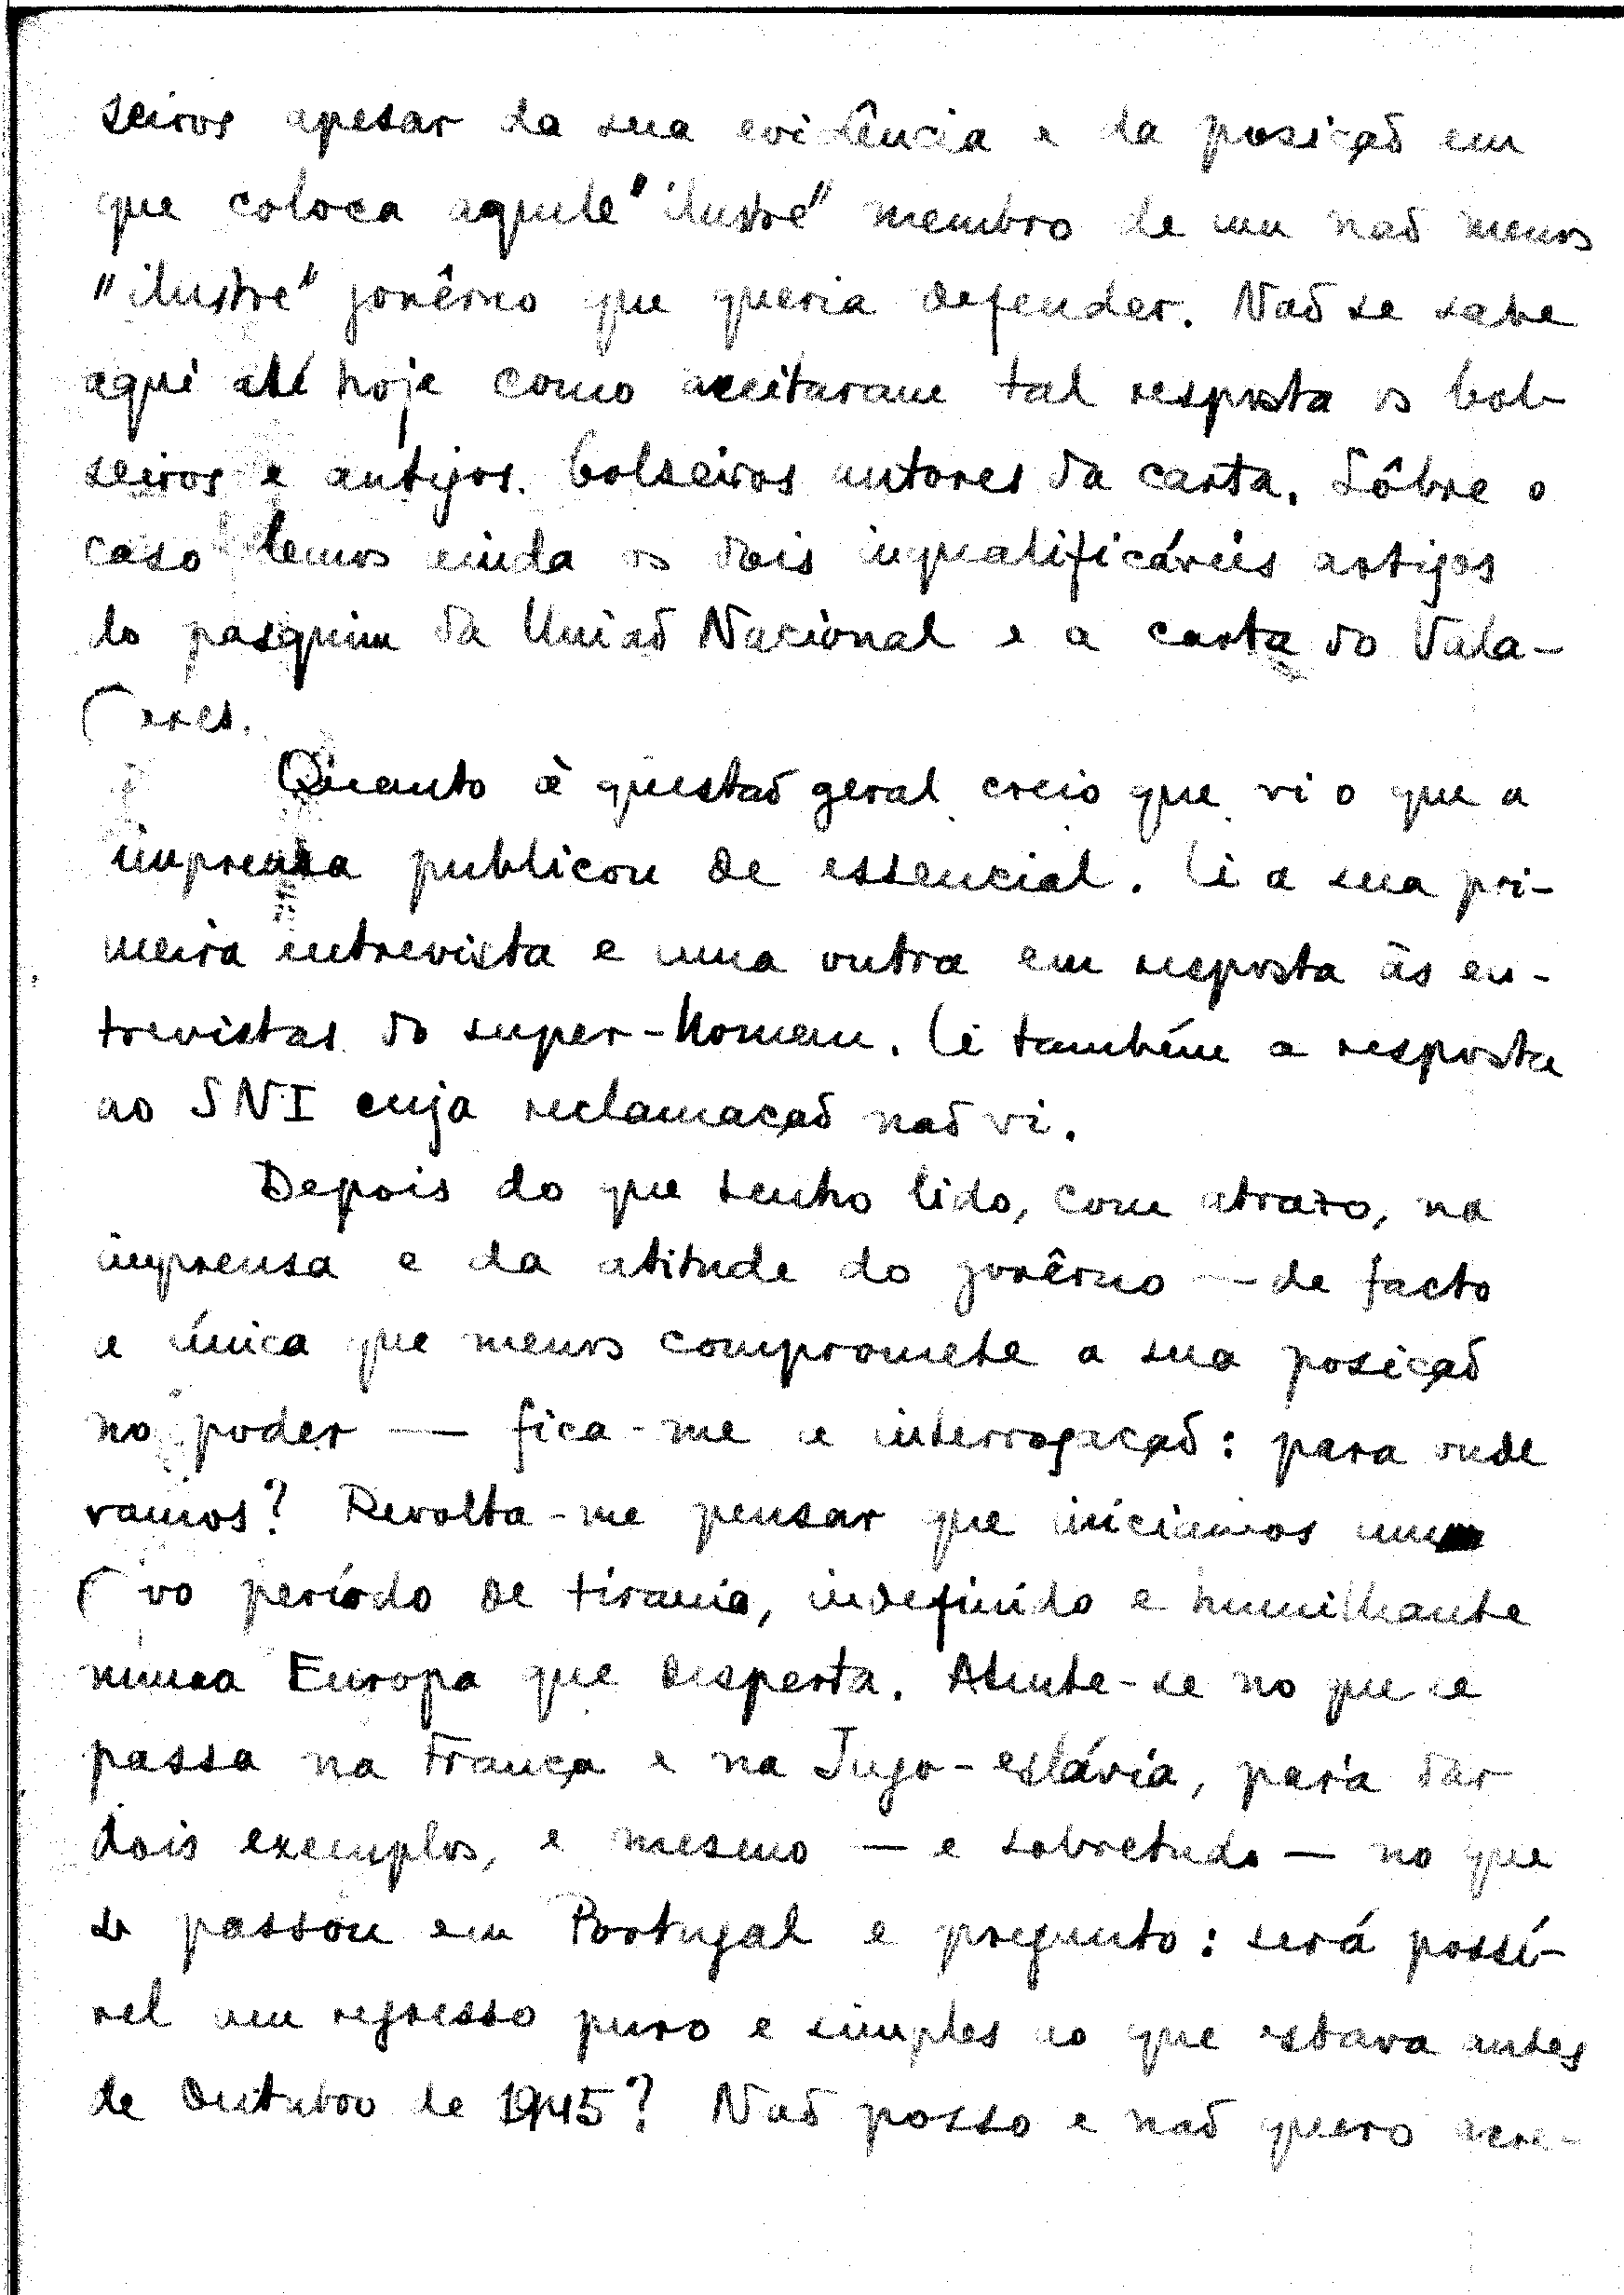 seiros apesar da sua evidência e da posição em
que coloca aquele "ilustre" membro de um não menos
"ilustre" govêrno que queria defender. Não se sabe
aqui até hoje como aceitaram tal resposta os bol-
seiros e antigos bolseiros autores da carta. Sôbre o
caso temos ainda os dois inqualificáveis artigos
do pasquim da União Nacional e a carta do Vala-
dares.
Quanto à questão geral creio que vi o que a
imprensa publicou de essencial. Li a sua pri-
meira entrevista e uma outra em resposta às en-
trevistas do super-homem. Li também a resposta
ao SNI cuja reclamação não vi.
Depois do que tenho lido, com atrazo, na
imprensa e da atitude do govêrno — de facto
a única que menos compromete a sua posição
no poder — fica-me a interrogação: para onde
vamos? Revolta-me pensar que iniciamos um
vo período de tirania, indefinido e humilhante
numa Europa que desperta. Atente-se no que se
passa na França e na Jugo-eslávia, para dar
dois exemplos, e mesmo — e sobretudo — no que
se passou em Portugal e pregunto: será possí-
vel um regresso puro e simples ao que estava antes
de Outubro de 1945? Não posso e não quero acre-